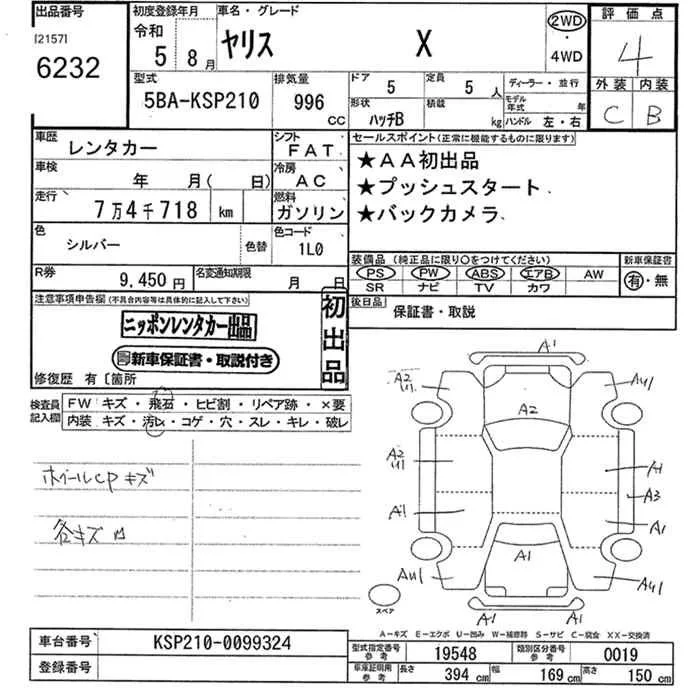 出品番号
[2157]
6232
初度登録年月
令和
5 8月
車名・グレード
ヤリス X
2WD
・
4WD
評価点
4
外装 内装
C B
型式
5BA-KSP210
排気量
996
cc
ドア 5
定員 5 人
ディーラー・並行
形状 ハッチB
積載 kg
モデル年式 年
ハンドル 左・右
車歴
レンタカー
シフト
FAT
車検
年 月( 日)
冷房
AC
走行
7万4千718 km
燃料
ガソリン
色
シルバー
色替
色コード
1L0
R券
9,450円
名変通知期限
月 日
セールスポイント(正常に機能するものに限ります)
★AA初出品
★プッシュスタート
★バックカメラ
装備品(純正品に限り〇をつけてください)
新車保証書
PS PW ABS エアB AW
SR ナビ TV カワ
有・無
後日品
保証書・取説
注意事項申告欄(不具合内容等は具体的に記入して下さい)
ニッポンレンタカー出品
新車保証書・取説付き
初出品
修復歴 有〔箇所
検査員記入欄
FW キズ・飛石・ヒビ割・リペア跡・×要
内装 キズ・汚レ・コゲ・穴・スレ・キレ・破レ
ホイールcpキズ
各キズ
A1
A2
A1
A3
A1
A1
A1
A1
スペア
A-キズ E-エクボ U-凹み W-補修跡 S-サビ C-腐食 XX-交換済
車台番号
KSP210-0099324
登録番号
型式指定番号
参考
19548
類別区分番号
参考
0019
車庫証明用
参考
長さ 394 cm
幅 169 cm
高さ 150 cm